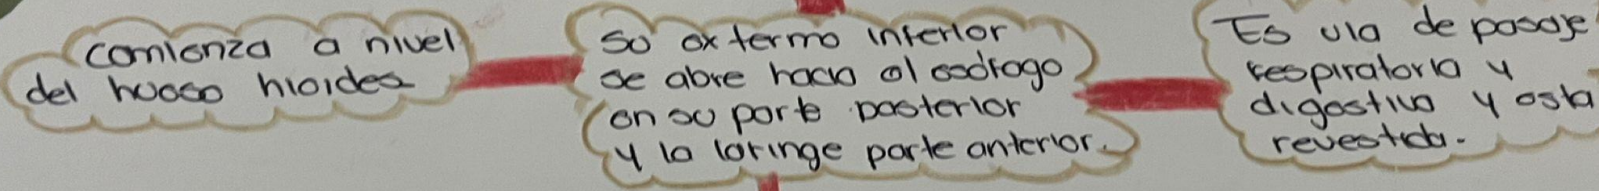 comienza a nivel
del hueso hioides
Su extermo inferior
se abre hacia el esofago
en su parte posterior
y la laringe parte anterior.
Es via de pasaje
respiratoria y
digestiva y esta
revestida.